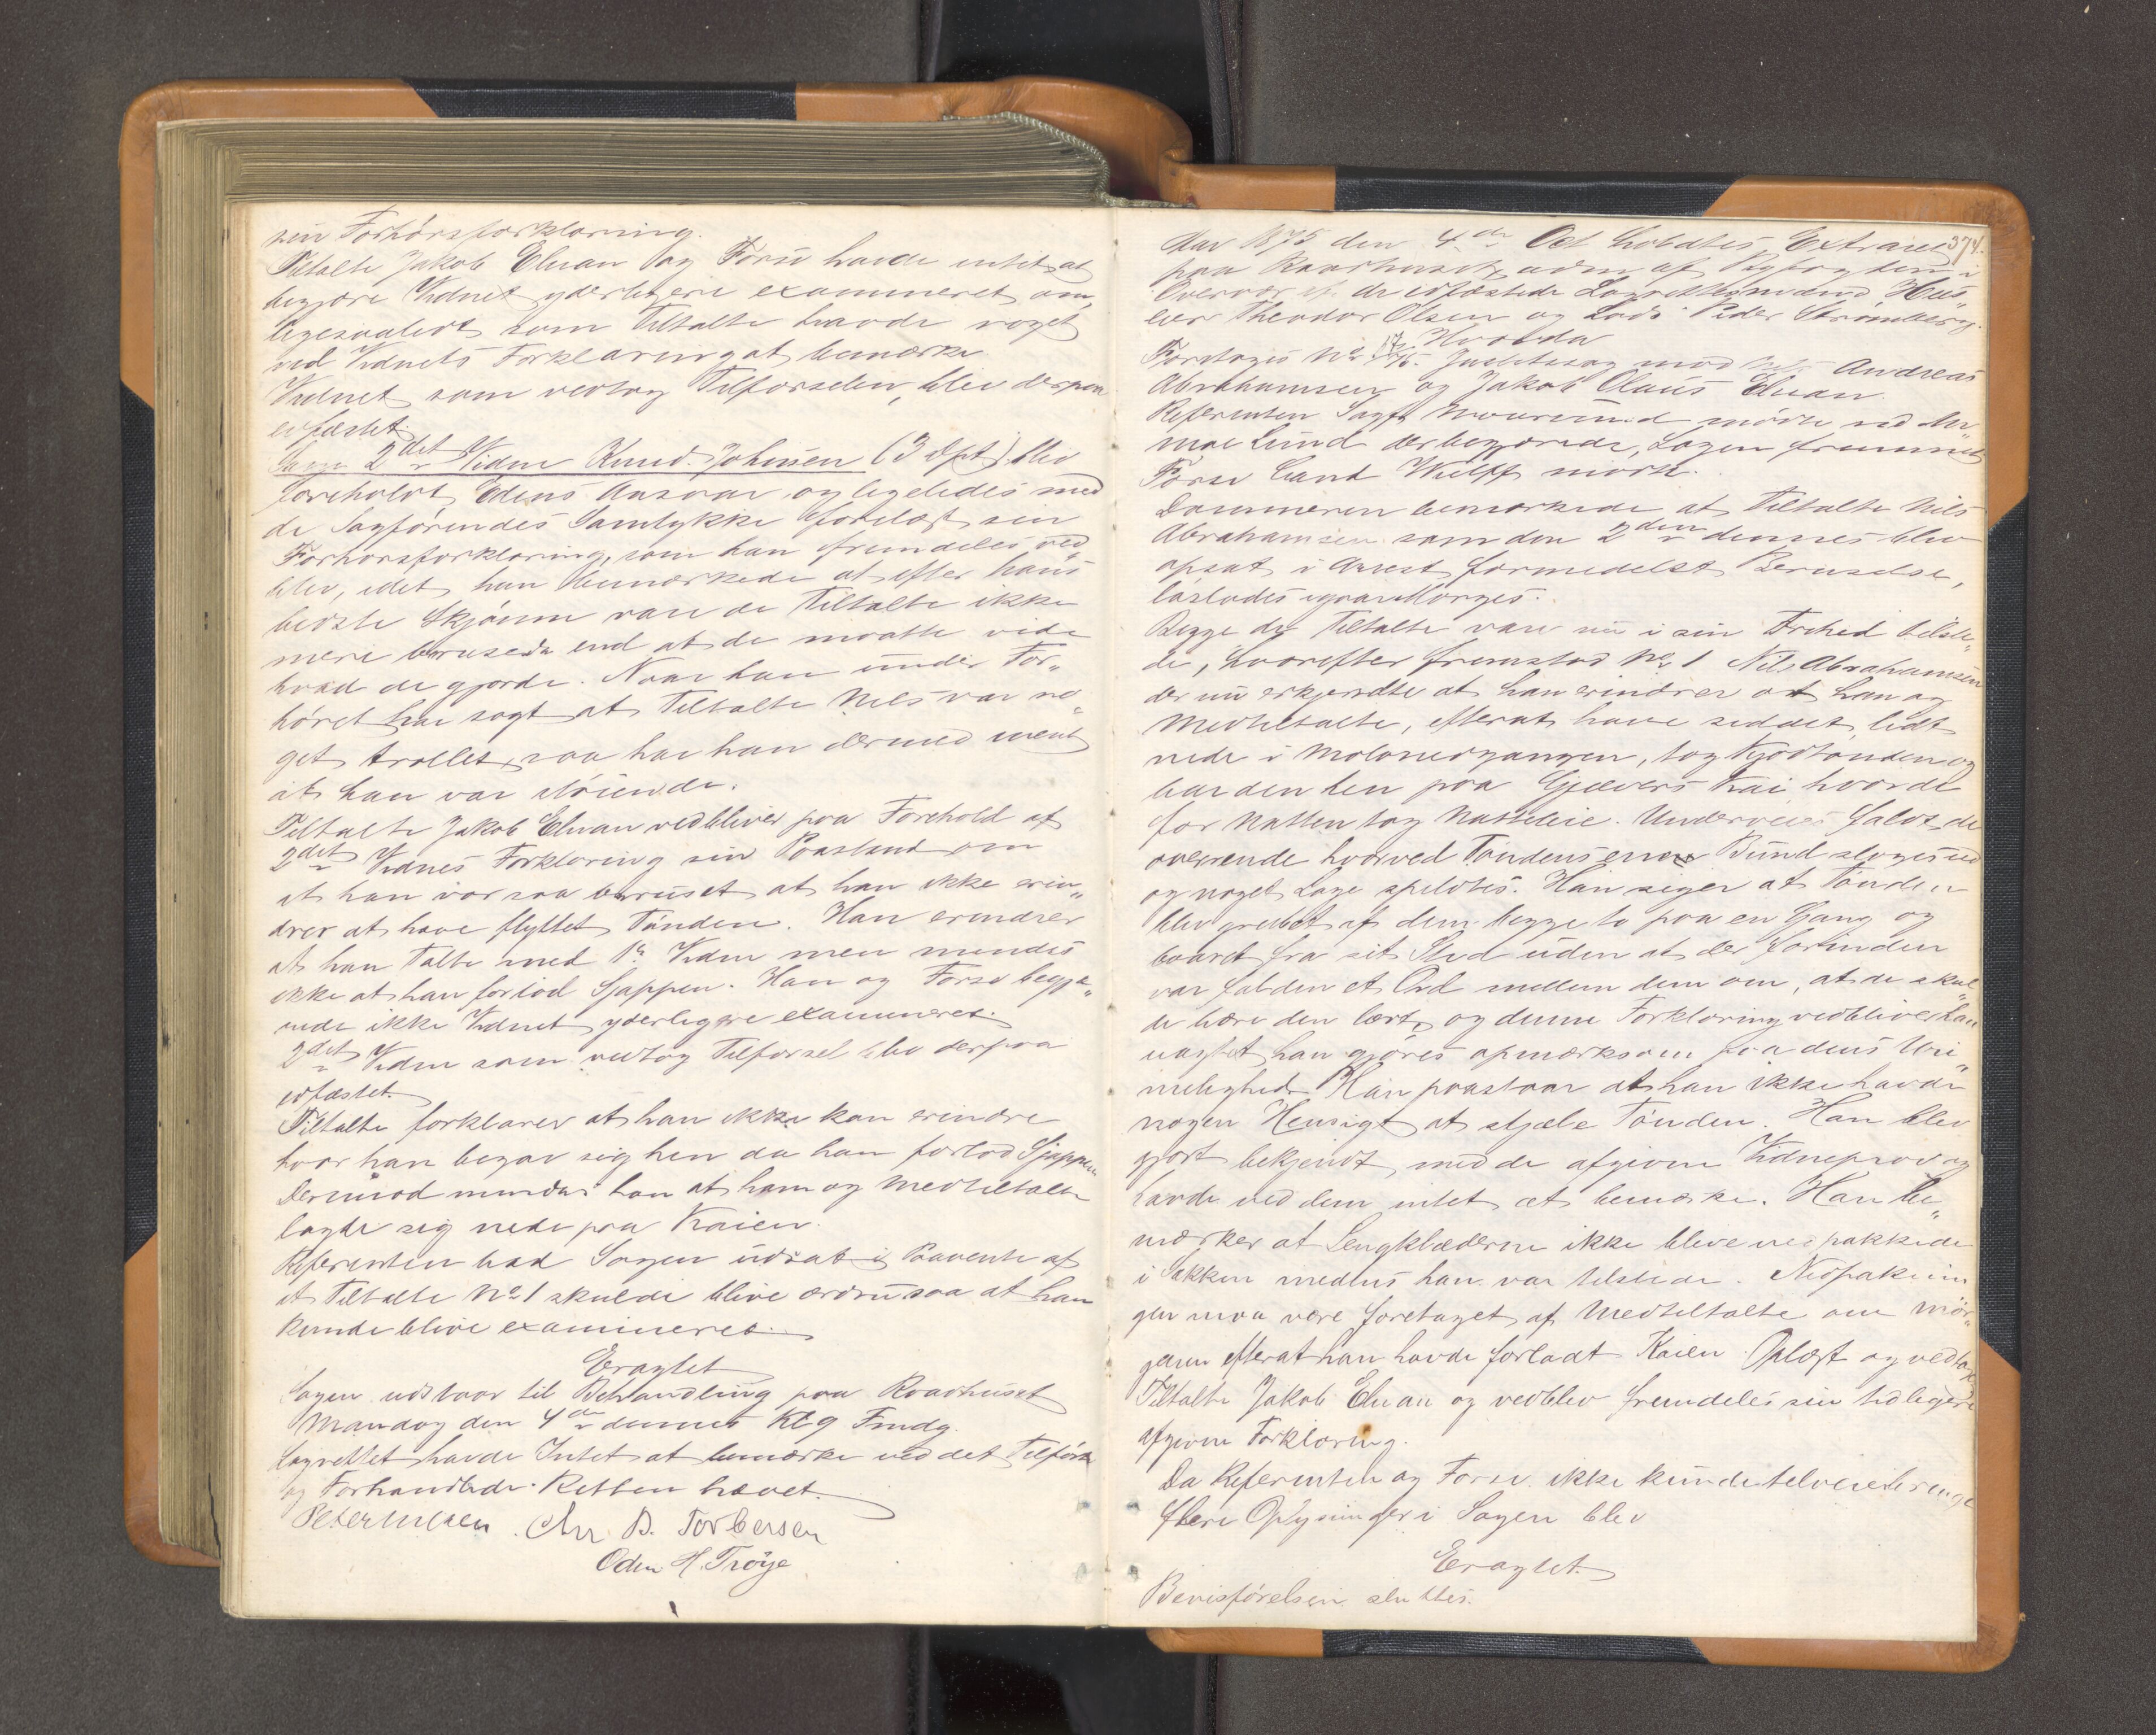 sin Forhørsforklaring.
Tiltalte Jakob Eluan og Forsv havde intet at
begjære Vidnet yderligere examineret om,
ligesaalidt som Tiltalte havde noget
ved Vidnets Forklaring at bemærke
Vidnet som vedtog Tilførselen, blev derpaa
edfæstet.
2det Vidne Knud Johnsen (3 Dpt) blev
foreholdt Edens Ansvar og ligeledes med
de Sagførendes Samtykke forelæst sin
Forhørsforklaring, som han fremdeles ved
blev, idet han bemærkede at efter hans
bedste Skjønne vare de Tiltalte ikke
mere berusede end at de maatte vide
hvad de gjorde. Naar han under For„
høret har sagt at Tiltalte Nils var no„
get trallet, saa har han dermed ment
at han var støiende.
Tiltalte Jakob Eluan vedbliver paa Forehold af
2det Vidnes Forklaring sin Paastand om
at han var saa beruset at han ikke erin„
drer at have flyttet Tønden. Han erindrer
at han talte med 1ste Vidne men mindes
ikke at han forlod Sjappen. Han og Forsv begjæ„
rede ikke Vidnet yderligere examineret.
2det Vidne som vedtog Tilførsel blev derpaa
edfæstet.
Tiltalte forklarer at han ikke kan erindre
hvor han begav sig hen da han forlod Sjappen
Derimod mindes han at han og Medtiltalte
lagde sig nede paa Kaien.
Referenten bad Sagen udsat i Paavente af
at Tiltalte No 1 skulde blive ædru saa at han
kunde blive examineret.
Eragtet
Sagen udstaar til Behandling paa Raadhuset
Mandag den 4de dennes Kl 9 Fmdg.
Lagrettet havde Intet at bemærke ved det Tilførte
og Forhandlede. Retten hævet.
Peter Nilsen. Chr B. Torbersen
Oden H. Trøye
374.
Aar 1875 den 4de Oct holdtes Extraret
paa Raadhuset, adm af Byfogden i
Overvær af de edfæstede Lagrettesmænd Hus„
eier Theodor Olsen og Lods Peder Strømberg.
Hvorda
Foretoges No 17/75. Justitssag mod Nils Andreas
Abrahamsen og Jakob Olaus Eluan.
Referenten Sagf mødte ved
Lund der begjærede Sagen fremmet
Forsv Cand Wulff mødte.
Dommeren bemærkede at Tiltalte Nils
Abrahamsen som den 2den dennes blev
opsat i Arrest formedelst Beruselse,
løslodes igaar Morges.
Begge de Tiltalte vare nu i sin Frihed tilste„
de, hvorefter fremstod No 1 Nils Abrahamsen
der nu erkjendte at han erindrer at han og
Medtiltalte, efterat have siddet lidt
nede i Molonedgangen, tog Kjødtønden og
bar den hen paa Gjævers Kai hvor de
for Natten tog Natteleie. Underveis faldt de
overende hvorved Tøndens ene Bund sloges ud
og noget Lage spildtes. Han siger at Tønden
blev grebet af dem begge to paa en Gang og
baaret fra sit Sted uden at der forinden
var falden et Ord mellem dem om, at de skul„
de bære den bort, og denne Forklaring vedbliver han
uagtet han gjøres opmærksom paa dens Uri„
melighed. Han paastaar at han ikke havde
nogen Hensigt at stjæle Tønden. Han blev
gjort bekjendt med de afgivne Vidneprov og
havde ved dem intet at bemærke. Han be„
mærker at Sengklæderne ikke bleve nedpakkede
i Sækken medens han var tilstede. Nedpaknin
gen maa være foretaget af Medtiltalte om Mor„
genen efterat han havde forladt Kaien. Oplæst og vedtaget
Tiltalte Jakob Eluan og vedblev fremdeles sin tidligere
afgivne Forklaring.
Da Referenten og Forsv. ikke kunde tilveiebringe
flere Oplysninger i Sagen blev
Eragtet.
Bevisførelsen sluttes.